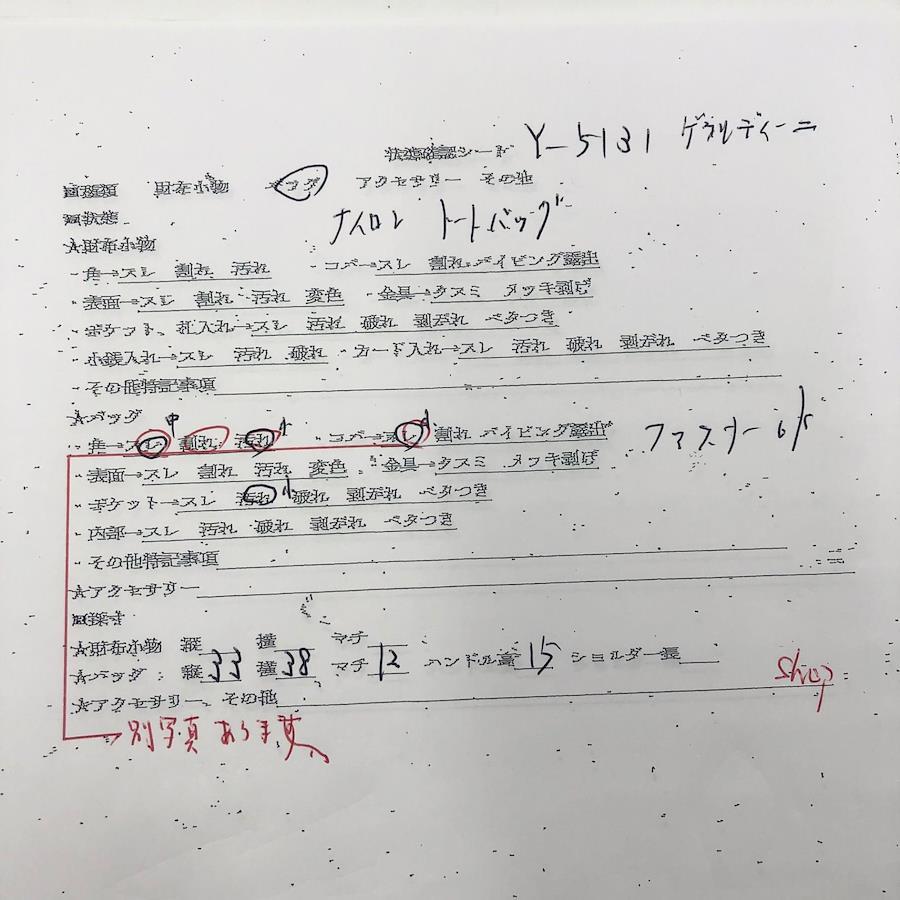 状態確認シート Y-5131 ゲラルディーニ
■種類 財布小物 バッグ アクセサリー その他
■状態 ナイロン トートバッグ
★財布小物
・角→スレ 割れ 汚れ ・コバ→スレ 割れ パイピング露出
・表面→スレ 割れ 汚れ 変色 ・金具→クスミ メッキ剥げ
・ポケット、札入れ→スレ 汚れ 破れ 剥がれ ベタつき
・小銭入れ→スレ 汚れ 破れ ・カード入れ→スレ 汚れ 破れ 剥がれ ベタつき
・その他特記事項
★バッグ
中 小 小
・角→スレ 割れ 汚れ ・コバ→スレ 割れ パイピング露出 ファスナー
・表面→スレ 割れ 汚れ 変色 ・金具→クスミ メッキ剥げ
・ポケット→スレ 汚れ 小 破れ 剥がれ ベタつき
・内部→スレ 汚れ 破れ 剥がれ ベタつき
・その他特記事項
★アクセサリー
■採寸
★財布小物 縦 横 マチ
★バッグ : 縦 33 横 38 マチ 12 ハンドル高 15 ショルダー長
★アクセサリー、その他
shop
別写真あります。